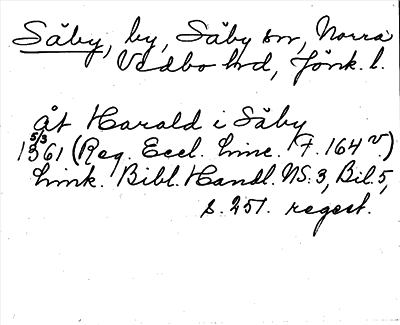 Säby, by, Säby sn, Norra
Vedbo hd, Jönk. l.
åt Harald i Säby
5/3 1361 (Reg. Eccl. Linc. F. 164 v.)
Link. Bibl. Handl. NS. 3, Bil. 5,
s. 251. regest.